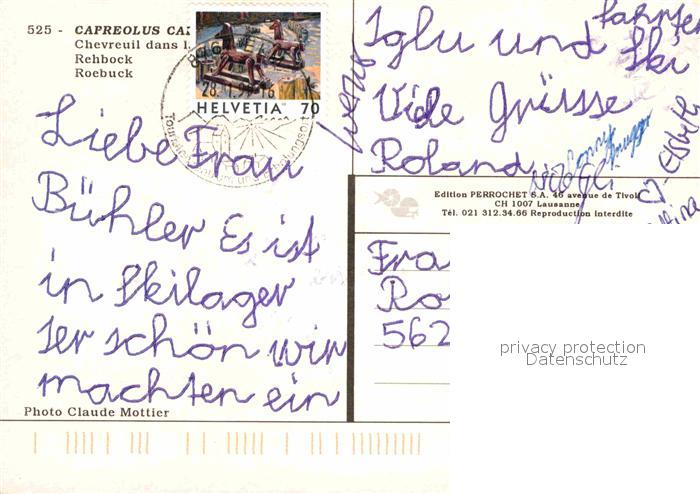 525 - CAPREOLUS CA
Chevreuil dans l
Rehbock
Roebuck
HELVETIA 70
Liebe Frau
Bühler Es ist
in Skilager
ser schön wir
machten ein
Iglu und
fahrten
Ski
Viele Grüsse
Roland
Edition PERROCHET S.A. 46 avenue de Tivol
CH 1007 Lausanne
Tél. 021 312.34.66 Reproduction interdite
Fra
Ro
562
privacy protection
Datenschutz
Photo Claude Mottier